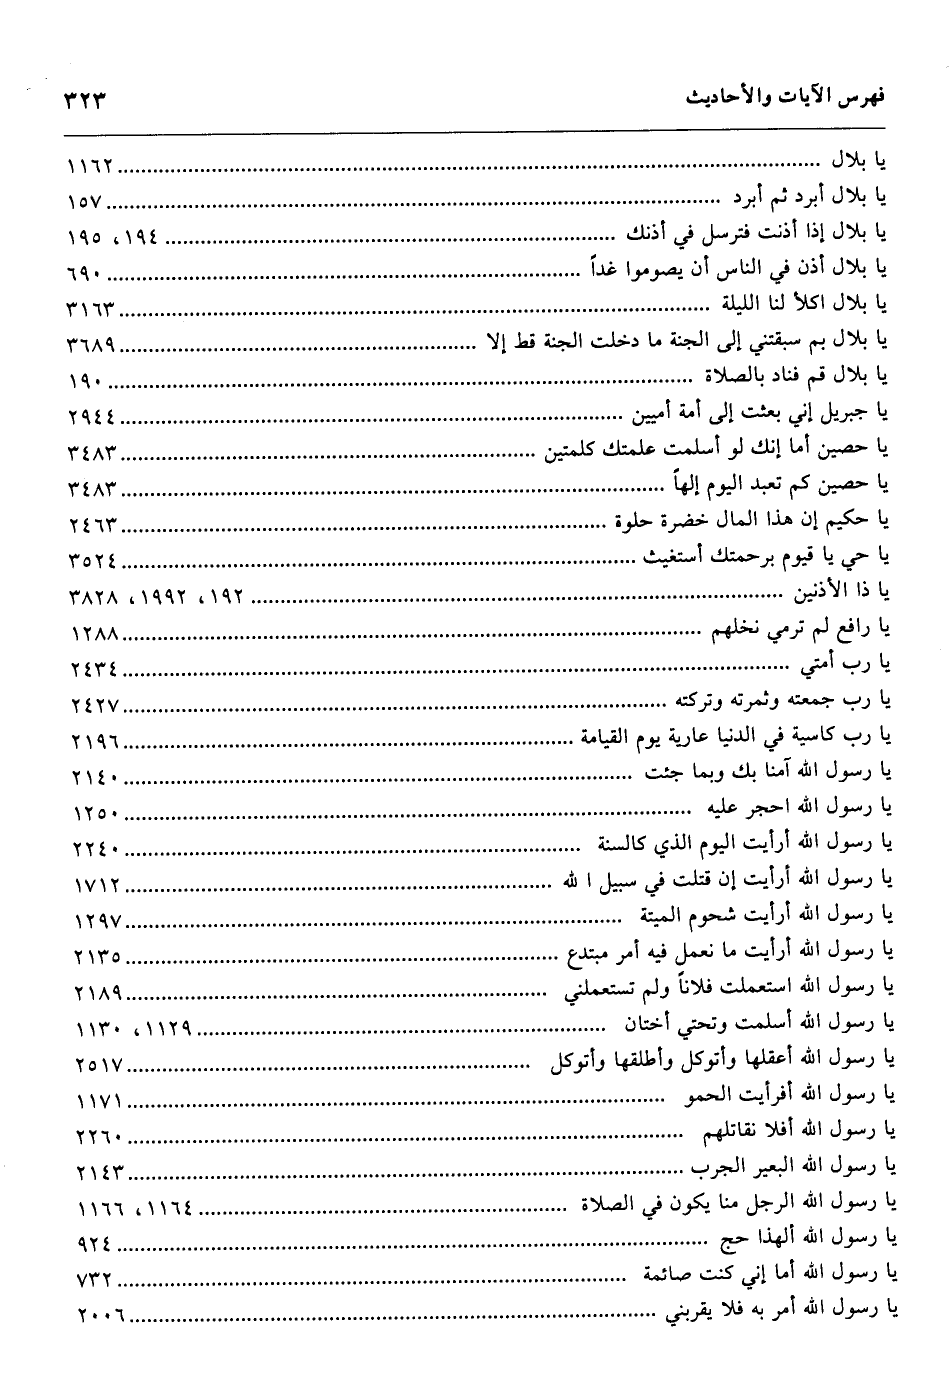 فهرس الآيات والأحاديث ٣٢٣
يا بلال ........ ١١٦٢
يا بلال أبرد ثم أبرد ........ ١٥٧
يا بلال إذا أذنت فترسل في أذنك ........ ١٩٤، ١٩٥
يا بلال أذن في الناس أن يصوموا غداً ........ ٦٩٠
يا بلال اكلأ لنا الليلة ........ ٣١٦٣
يا بلال بم سبقتني إلى الجنة ما دخلت الجنة قط إلا ........ ٣٦٨٩
يا بلال قم فناد بالصلاة ........ ١٩٠
يا جبريل إني بعثت إلى أمة أميين ........ ٢٩٤٤
يا حصين أما إنك لو أسلمت علمتك كلمتين ........ ٣٤٨٣
يا حصين كم تعبد اليوم إلهاً ........ ٣٤٨٣
يا حكيم إن هذا المال خضرة حلوة ........ ٢٤٦٣
يا حي يا قيوم برحمتك أستغيث ........ ٣٥٢٤
يا ذا الأذنين ........ ١٩٢، ١٩٩٢، ٣٨٢٨
يا رافع لم ترمي نخلهم ........ ١٢٨٨
يا رب أمتي ........ ٢٤٣٤
يا رب جمعته وثمرته وتركته ........ ٢٤٢٧
يا رب كاسية في الدنيا عارية يوم القيامة ........ ٢١٩٦
يا رسول الله آمنا بك وبما جئت ........ ٢١٤٠
يا رسول الله احجر عليه ........ ١٢٥٠
يا رسول الله أرأيت اليوم الذي كالسنة ........ ٢٢٤٠
يا رسول الله أرأيت إن قتلت في سبيل ا لله ........ ١٧١٢
يا رسول الله أرأيت شحوم الميتة ........ ١٢٩٧
يا رسول الله أرأيت ما نعمل فيه أمر مبتدع ........ ٢١٣٥
يا رسول الله استعملت فلاناً ولم تستعملني ........ ٢١٨٩
يا رسول الله أسلمت وتحتي أختان ........ ١١٢٩، ١١٣٠
يا رسول الله أعقلها وأتوكل وأطلقها وأتوكل ........ ٢٥١٧
يا رسول الله أفرأيت الحمو ........ ١١٧١
يا رسول الله أفلا نقاتلهم ........ ٢٢٦٠
يا رسول الله البعير الجرب ........ ٢١٤٣
يا رسول الله الرجل منا يكون في الصلاة ........ ١١٦٤، ١١٦٦
يا رسول الله ألهذا حج ........ ٩٢٤
يا رسول الله أما إني كنت صائمة ........ ٧٣٢
يا رسول الله أمر به فلا يقربني ........ ٢٠٠٦